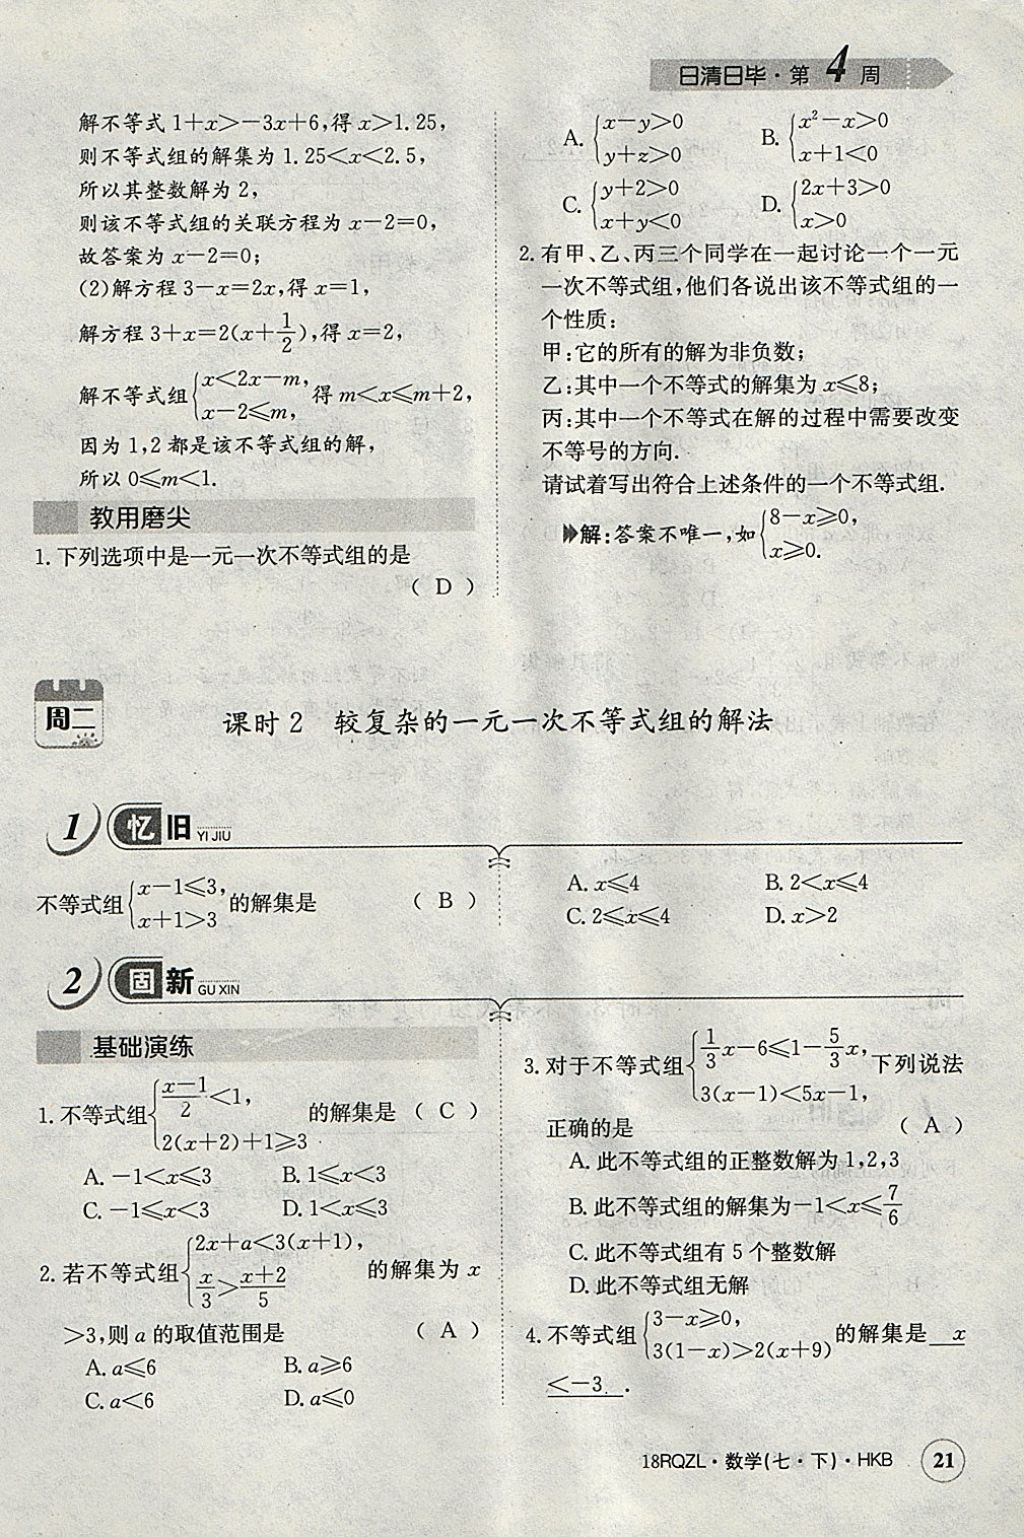 日清日毕·第4周
解不等式1+x>-3x+6,得x>1.25,
则不等式组的解集为1.25<x<2.5,
所以其整数解为2,
则该不等式组的关联方程为x-2=0,
故答案为x-2=0;
(2)解方程3-x=2x,得x=1,
解方程3+x=2(x+1/2),得x=2,
解不等式组{x<2x-m, x-2≤m,得m<x≤m+2,
因为1,2都是该不等式组的解,
所以0≤m<1.
教用磨尖
1.下列选项中是一元一次不等式组的是
( D )
A.{x-y>0 y+z>0 B.{x²-x>0 x+1<0
C.{y+2>0 x+y<0 D.{2x+3>0 x>0
2.有甲、乙、丙三个同学在一起讨论一个一元
一次不等式组,他们各说出该不等式组的一
个性质:
甲:它的所有的解为非负数;
乙:其中一个不等式的解集为x≤8;
丙:其中一个不等式在解的过程中需要改变
不等号的方向.
请试着写出符合上述条件的一个不等式组.
解:答案不唯一,如{8-x≥0, x≥0.
周二
课时2 较复杂的一元一次不等式组的解法
1 忆旧 YI JIU
不等式组{x-1≤3, x+1>3的解集是 ( B )
A.x≤4 B.2<x≤4
C.2≤x≤4 D.x>2
2 固新 GU XIN
基础演练
1.不等式组{(x-1)/2<1, 2(x+2)+1≥3的解集是 ( C )
A.-1<x≤3 B.1≤x<3
C.-1≤x<3 D.1<x≤3
2.若不等式组{2x+a<3(x+1), x/3>(x+2)/5的解集为x
>3,则a的取值范围是 ( A )
A.a≤6 B.a≥6
C.a<6 D.a≤0
3.对于不等式组{1/3x-6≤1-5/3x, 3(x-1)<5x-1,下列说法
正确的是 ( A )
A.此不等式组的正整数解为1,2,3
B.此不等式组的解集为-1<x≤7/6
C.此不等式组有5个整数解
D.此不等式组无解
4.不等式组{3-x≥0, 3(1-x)>2(x+9)的解集是 x
<-3 .
18RQZL·数学(七·下)·HKB 21